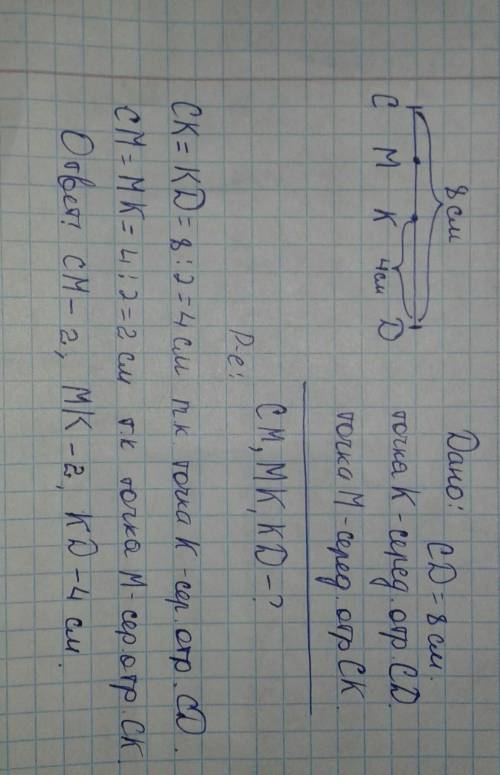 8 см
C M K 4см D
Дано: CD = 8 см.
точка K - серед. отр. CD.
точка M - серед. отр. CK.
CM, MK, KD - ?
Р-е:
CK = KD = 8 : 2 = 4 см т.к. точка K - сер. отр. CD.
CM = MK = 4 : 2 = 2 см т.к точка M - сер. отр. CK.
Ответ: CM - 2, MK - 2, KD - 4 см.